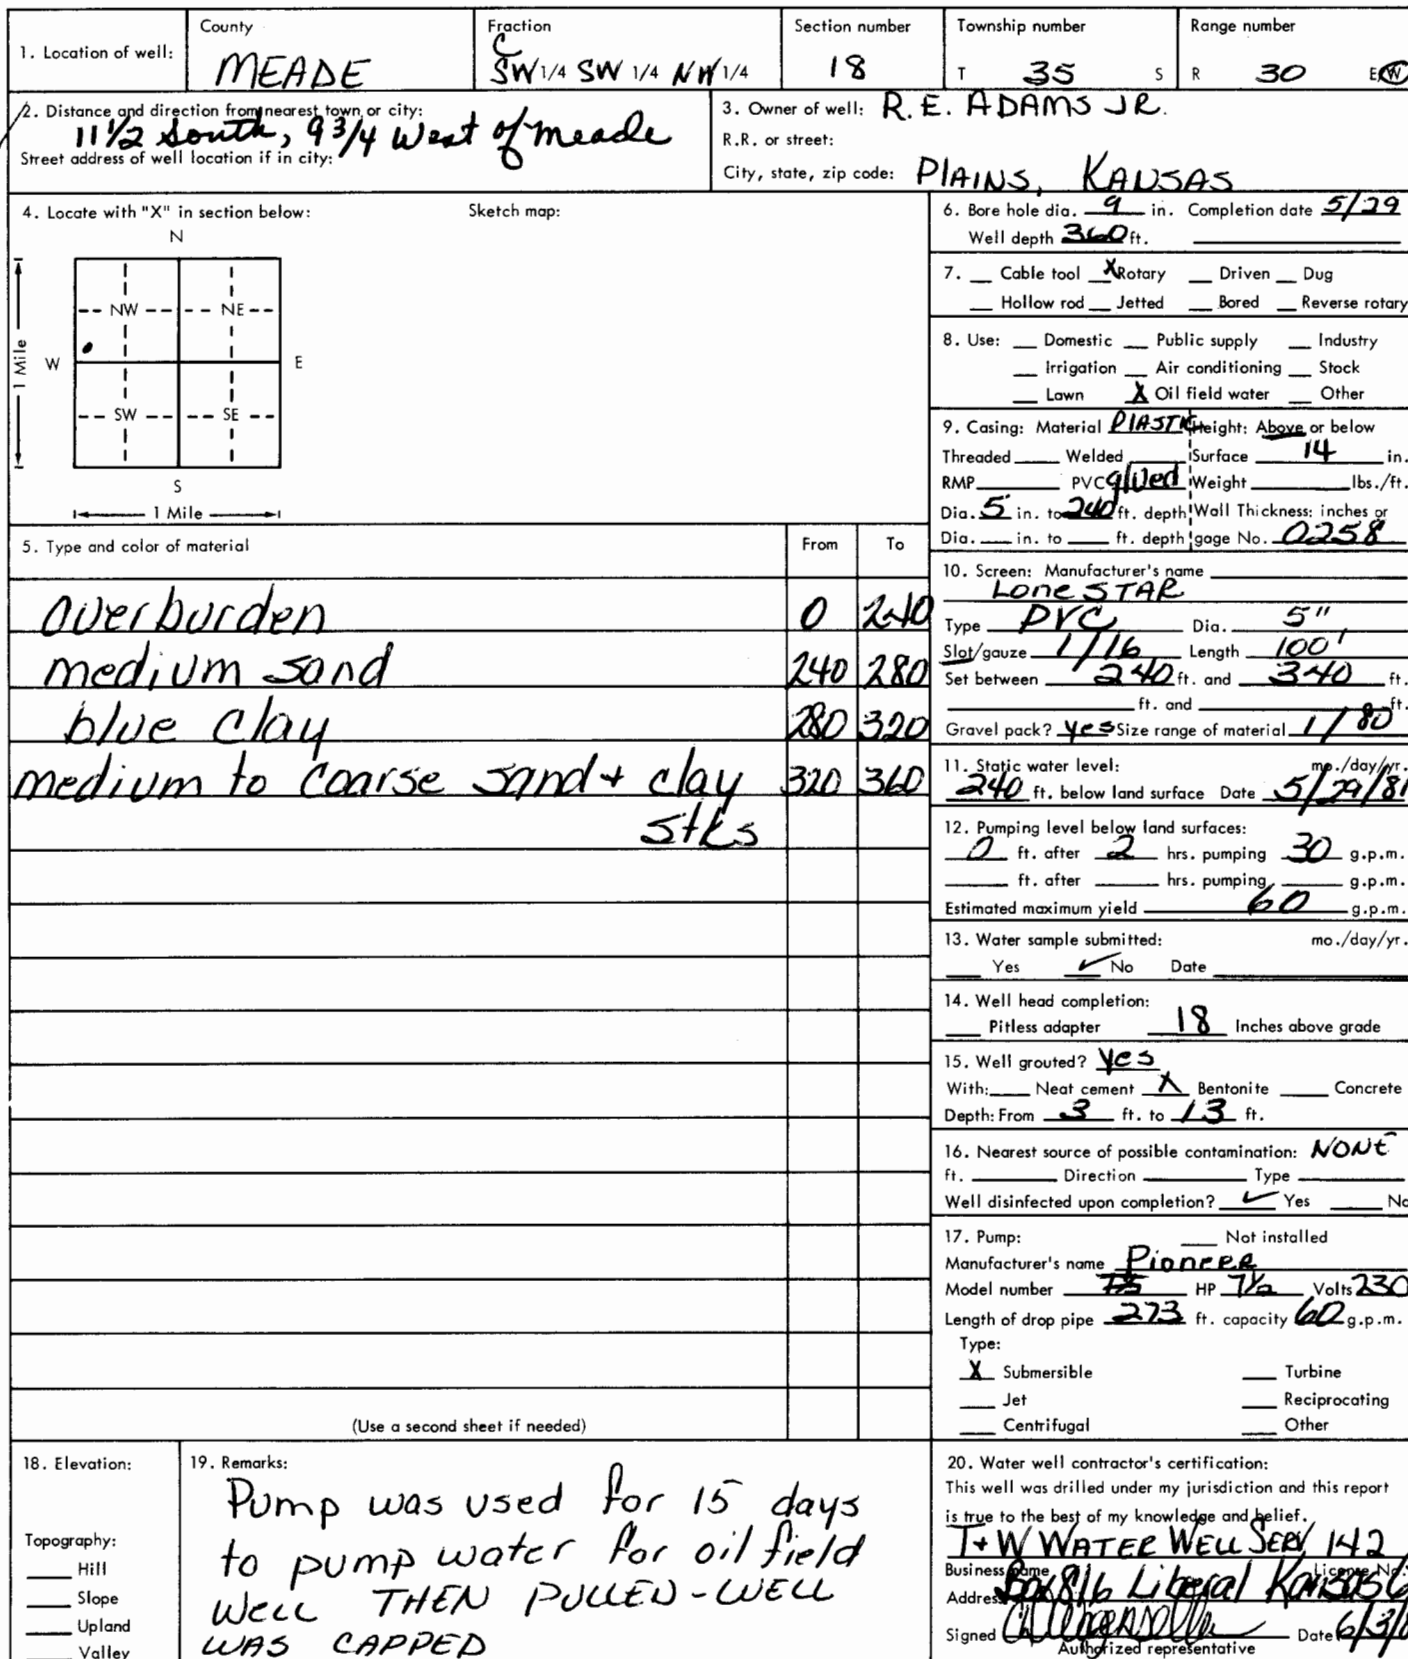 1. Location of well:
County
MEADE
Fraction
C
SW 1/4 SW 1/4 NW 1/4
Section number
18
Township number
T 35 S
Range number
R 30 E W
2. Distance and direction from nearest town or city:
11 1/2 South, 9 3/4 West of Meade
Street address of well location if in city:
3. Owner of well: R.E. ADAMS JR.
R.R. or street:
City, state, zip code: PLAINS, KANSAS
4. Locate with "X" in section below: Sketch map:
N
NW NE
1 Mile W E
SW SE
S
1 Mile
6. Bore hole dia. 9 in. Completion date 5/29
Well depth 360 ft.
7. Cable tool X Rotary Driven Dug
Hollow rod Jetted Bored Reverse rotary
8. Use: Domestic Public supply Industry
Irrigation Air conditioning Stock
Lawn X Oil field water Other
9. Casing: Material PLASTIC Height: Above or below
Threaded Welded Surface 14 in.
RMP PVC glued Weight lbs./ft.
Dia. 5 in. to 240 ft. depth Wall Thickness: inches or
Dia. in. to ft. depth gage No. 0258
5. Type and color of material From To
overburden 0 240
medium sand 240 280
blue clay 280 320
medium to coarse sand + clay 320 360
stks
(Use a second sheet if needed)
10. Screen: Manufacturer's name
Lone STAR
Type PVC Dia. 5"
Slot/gauze 1/16 Length 100'
Set between 240 ft. and 340 ft.
ft. and ft.
Gravel pack? yes Size range of material 1/80
11. Static water level: mo./day/yr.
240 ft. below land surface Date 5/29/81
12. Pumping level below land surfaces:
0 ft. after 2 hrs. pumping 30 g.p.m.
ft. after hrs. pumping g.p.m.
Estimated maximum yield 60 g.p.m.
13. Water sample submitted: mo./day/yr.
Yes ✓ No Date
14. Well head completion:
Pitless adapter 18 Inches above grade
15. Well grouted? yes
With: Neat cement X Bentonite Concrete
Depth: From 3 ft. to 13 ft.
16. Nearest source of possible contamination: NONE
ft. Direction Type
Well disinfected upon completion? ✓ Yes No
17. Pump: Not installed
Manufacturer's name Pioneer
Model number HP 7 1/2 Volts 230
Length of drop pipe 273 ft. capacity 60 g.p.m.
Type:
X Submersible Turbine
Jet Reciprocating
Centrifugal Other
18. Elevation:
Topography:
Hill
Slope
Upland
Valley
19. Remarks:
Pump was used for 15 days
to pump water for oil field
well THEN PULLED-WELL
WAS CAPPED
20. Water well contractor's certification:
This well was drilled under my jurisdiction and this report
is true to the best of my knowledge and belief.
T+W WATER WELL SERV 142
Business name License No.
Address Box 816 Liberal
Signed Date 6/3/8
Authorized representative